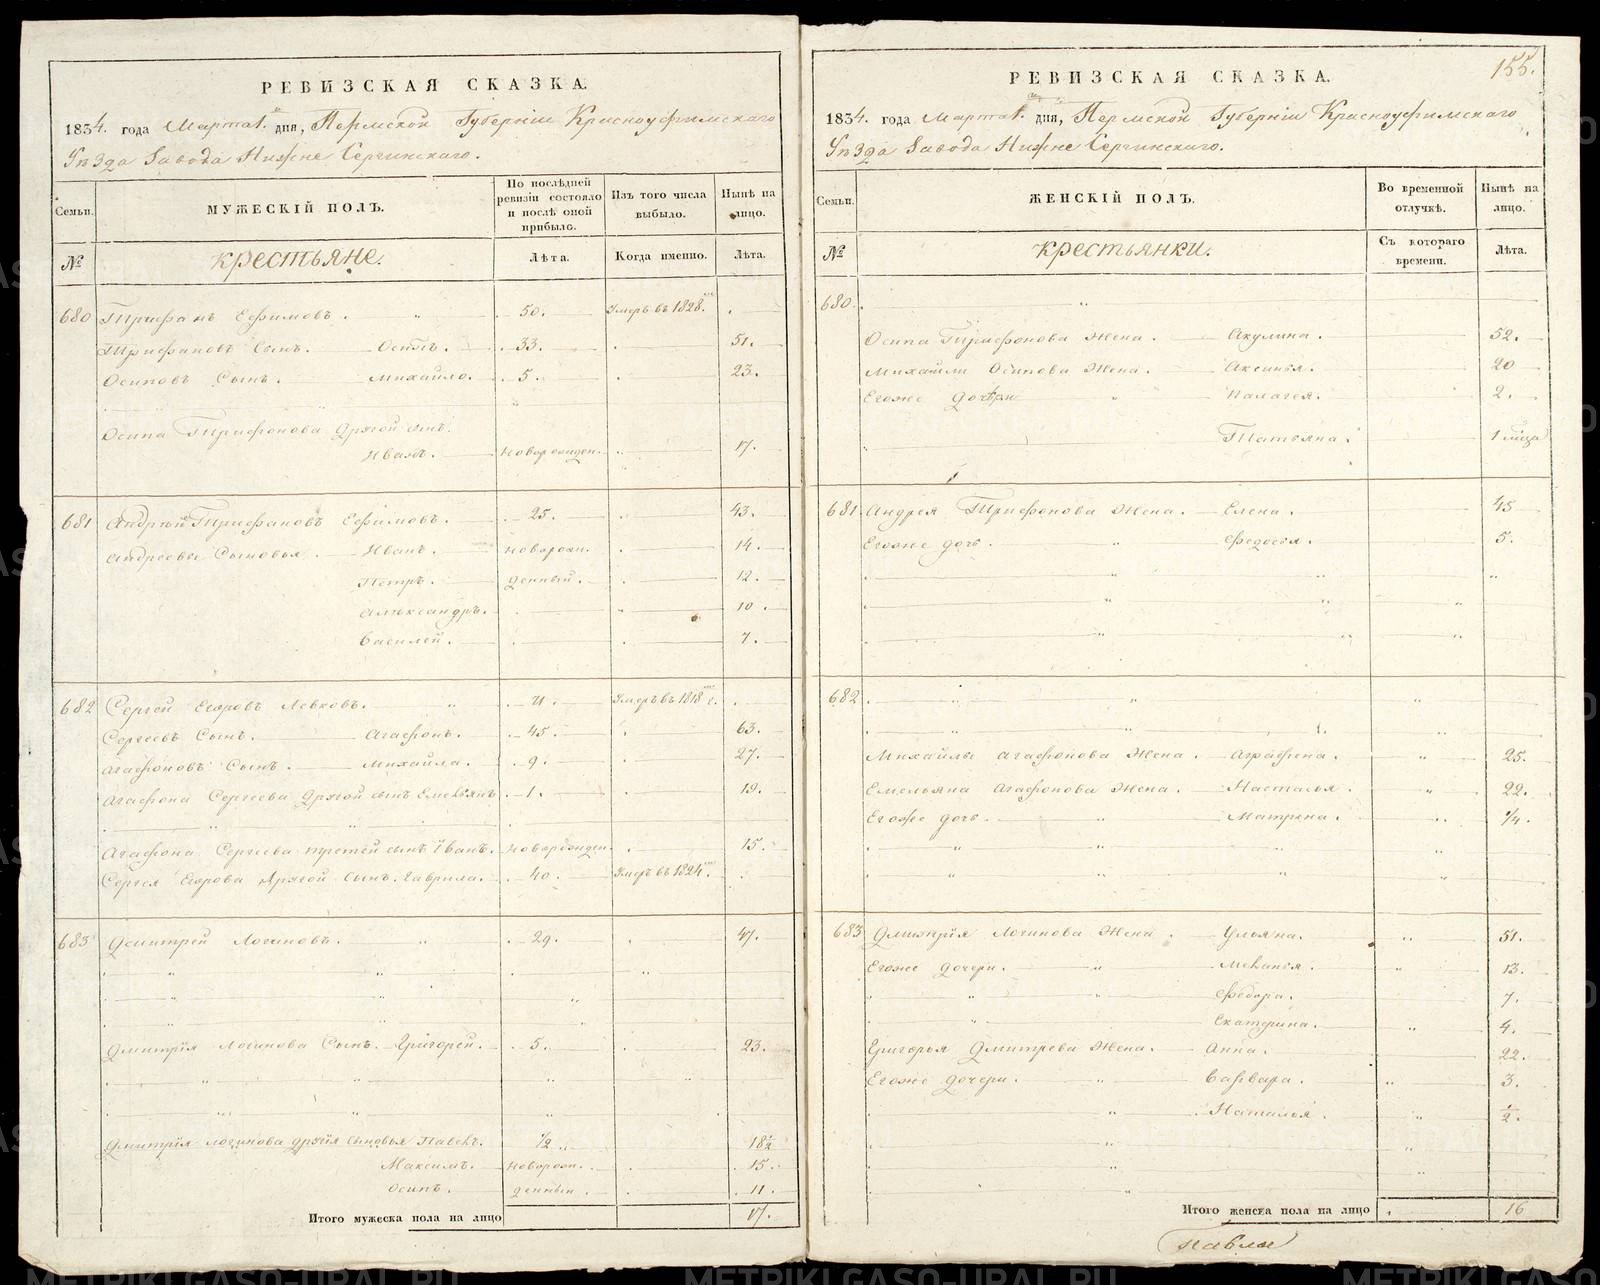 РЕВИЗСКАЯ СКАЗКА.
1834. года Марта 1. дня, Пермской Губернiи Красноуфимскаго
Уѣзда Завода Нижне Сергинскаго.
Семьи.
МУЖЕСКIЙ ПОЛЪ.
По послѣдней ревизiи состояло и послѣ оной прибыло.
Изъ того числа выбыло.
Нынѣ на лицо.
№ крестьяне.
Лѣта.
Когда именно.
Лѣта.
680 Трифанъ Ефимовъ. 50. Умеръ въ 1828.
Трифановъ Сынъ. Осипъ. 33. 51.
Осиповъ Сынъ. Михайло. 5. 23.
Осипа Трифонова другой сынъ.
Иванъ. Новорожден. 17.
681 Андрѣй Трифановъ Ефимовъ. 25. 43.
Андреевы Сыновья. Иванъ. новорож. 14.
Петръ. денный. 12.
Александръ. 10.
Василей. 7.
682 Сергей Егоровъ Левковъ. 71. Умеръ въ 1818 г.
Сергеевъ Сынъ. Агафонъ. 45. 63.
Агафоновъ Сынъ. Михайла. 9. 27.
Агафона Сергеева другой сынъ Емельянъ. 1. 19.
Агафона Сергеева третей сынъ Иванъ. новорожден. 15.
Сергея Егорова другой Сынъ. Гаврила. 40. Умеръ въ 1824.
683 Дмитрей Логиновъ. 29. 47.
Дмитрiя Логинова Сынъ. Григорей. 5. 23.
Дмитрiя логинова другiя Сыновья Павелъ. 1/2 18 1/2
Максимъ. новорож. 15.
Осипъ. денныи. 11.
Итого мужеска пола на лицо 17.
155.
РЕВИЗСКАЯ СКАЗКА.
1834. года Марта 1. дня, Пермской Губернiи Красноуфимскаго
Уѣзда Завода Нижне Сергинскаго.
Семьи.
ЖЕНСКIЙ ПОЛЪ.
Во временной отлучкѣ.
Нынѣ на лицо.
№ крестьянки.
Съ котораго времени.
Лѣта.
680.
Осипа Трифонова Жена. Акулина. 52.
Михайли Осипова Жена. Аксинья. 20
Егоже дочери Палагея. 2.
Татьяна. 1 мѣсца
681. Андрея Трифонова Жена. Елена. 45
Егоже дочь. Федосья. 5.
682.
Михайлы Агафонова Жена. Аграфена. 25.
Емельяна Агафонова Жена. Насталья. 22.
Егоже дочь. Матрена. 1/4.
683 Дмитрiя Логинова Жена. Ульяна. 51.
Егоже дочери. Меланья. 13.
Федора. 7.
Екатерина. 4.
Григорья Дмитрева Жена. Анна. 22.
Егоже дочери. Варвара. 3.
Наталья. 1/2.
Итого женска пола на лицо 16